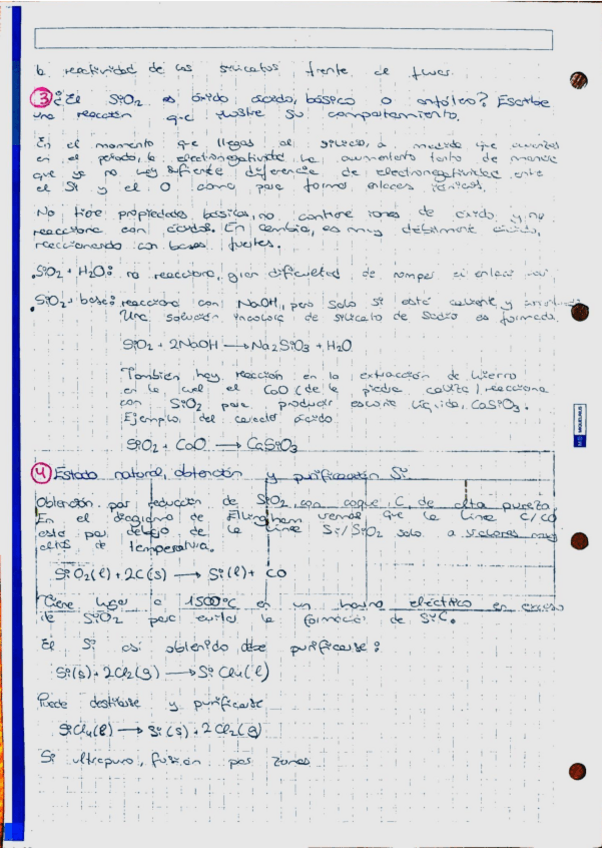 b. reactividad de los silicatos frente al fluor.
3 ¿El SiO2 es óxido ácido, básico o anfótero? Escribe
una reacción que ilustre su comportamiento.
En el momento que llegas al silicio, a medida que avanzas
en el periodo, la electronegatividad ha aumentado tanto de manera
que ya no hay suficiente diferencia de electronegatividad entre
el Si y el O como para formar enlaces iónicos.
No tiene propiedades básicas, no contiene iones de óxido y no
reacciona con ácidos. En cambio, es muy débilmente ácido,
reaccionando con bases fuertes.
. SiO2 + H2O: no reacciona, gran dificultad de romper el enlace
. SiO2 + base: reacciona con NaOH, pero solo si está caliente y
Una solución incolora de silicato de sodio es formada.
SiO2 + 2NaOH → Na2SiO3 + H2O
También hay reacción en la extracción de hierro
en la cual el CaO (de la piedra caliza) reacciona
con SiO2 para producir escoria líquida, CaSiO3.
Ejemplo del carácter ácido
SiO2 + CaO → CaSiO3
4 Estado natural, obtención y purificación Si.
Obtención por reducción de SiO2, con coque, C, de alta pureza
En el diagrama de Ellingham vemos que la línea C/CO
está por debajo de la línea Si/SiO2 solo a valores muy
altos de temperatura.
SiO2(l) + 2C(s) → Si(l) + CO
Tiene lugar a 1500°C en un horno eléctrico en exceso
de SiO2 para evitar la formación de SiC.
El Si así obtenido debe purificarse:
Si(s) + 2Cl2(g) → SiCl4(l)
Puede destilarse y purificarse
SiCl4(l) → Si(s) + 2Cl2(g)
Si ultrapuro, fusión por zonas
MIQUELRIUS